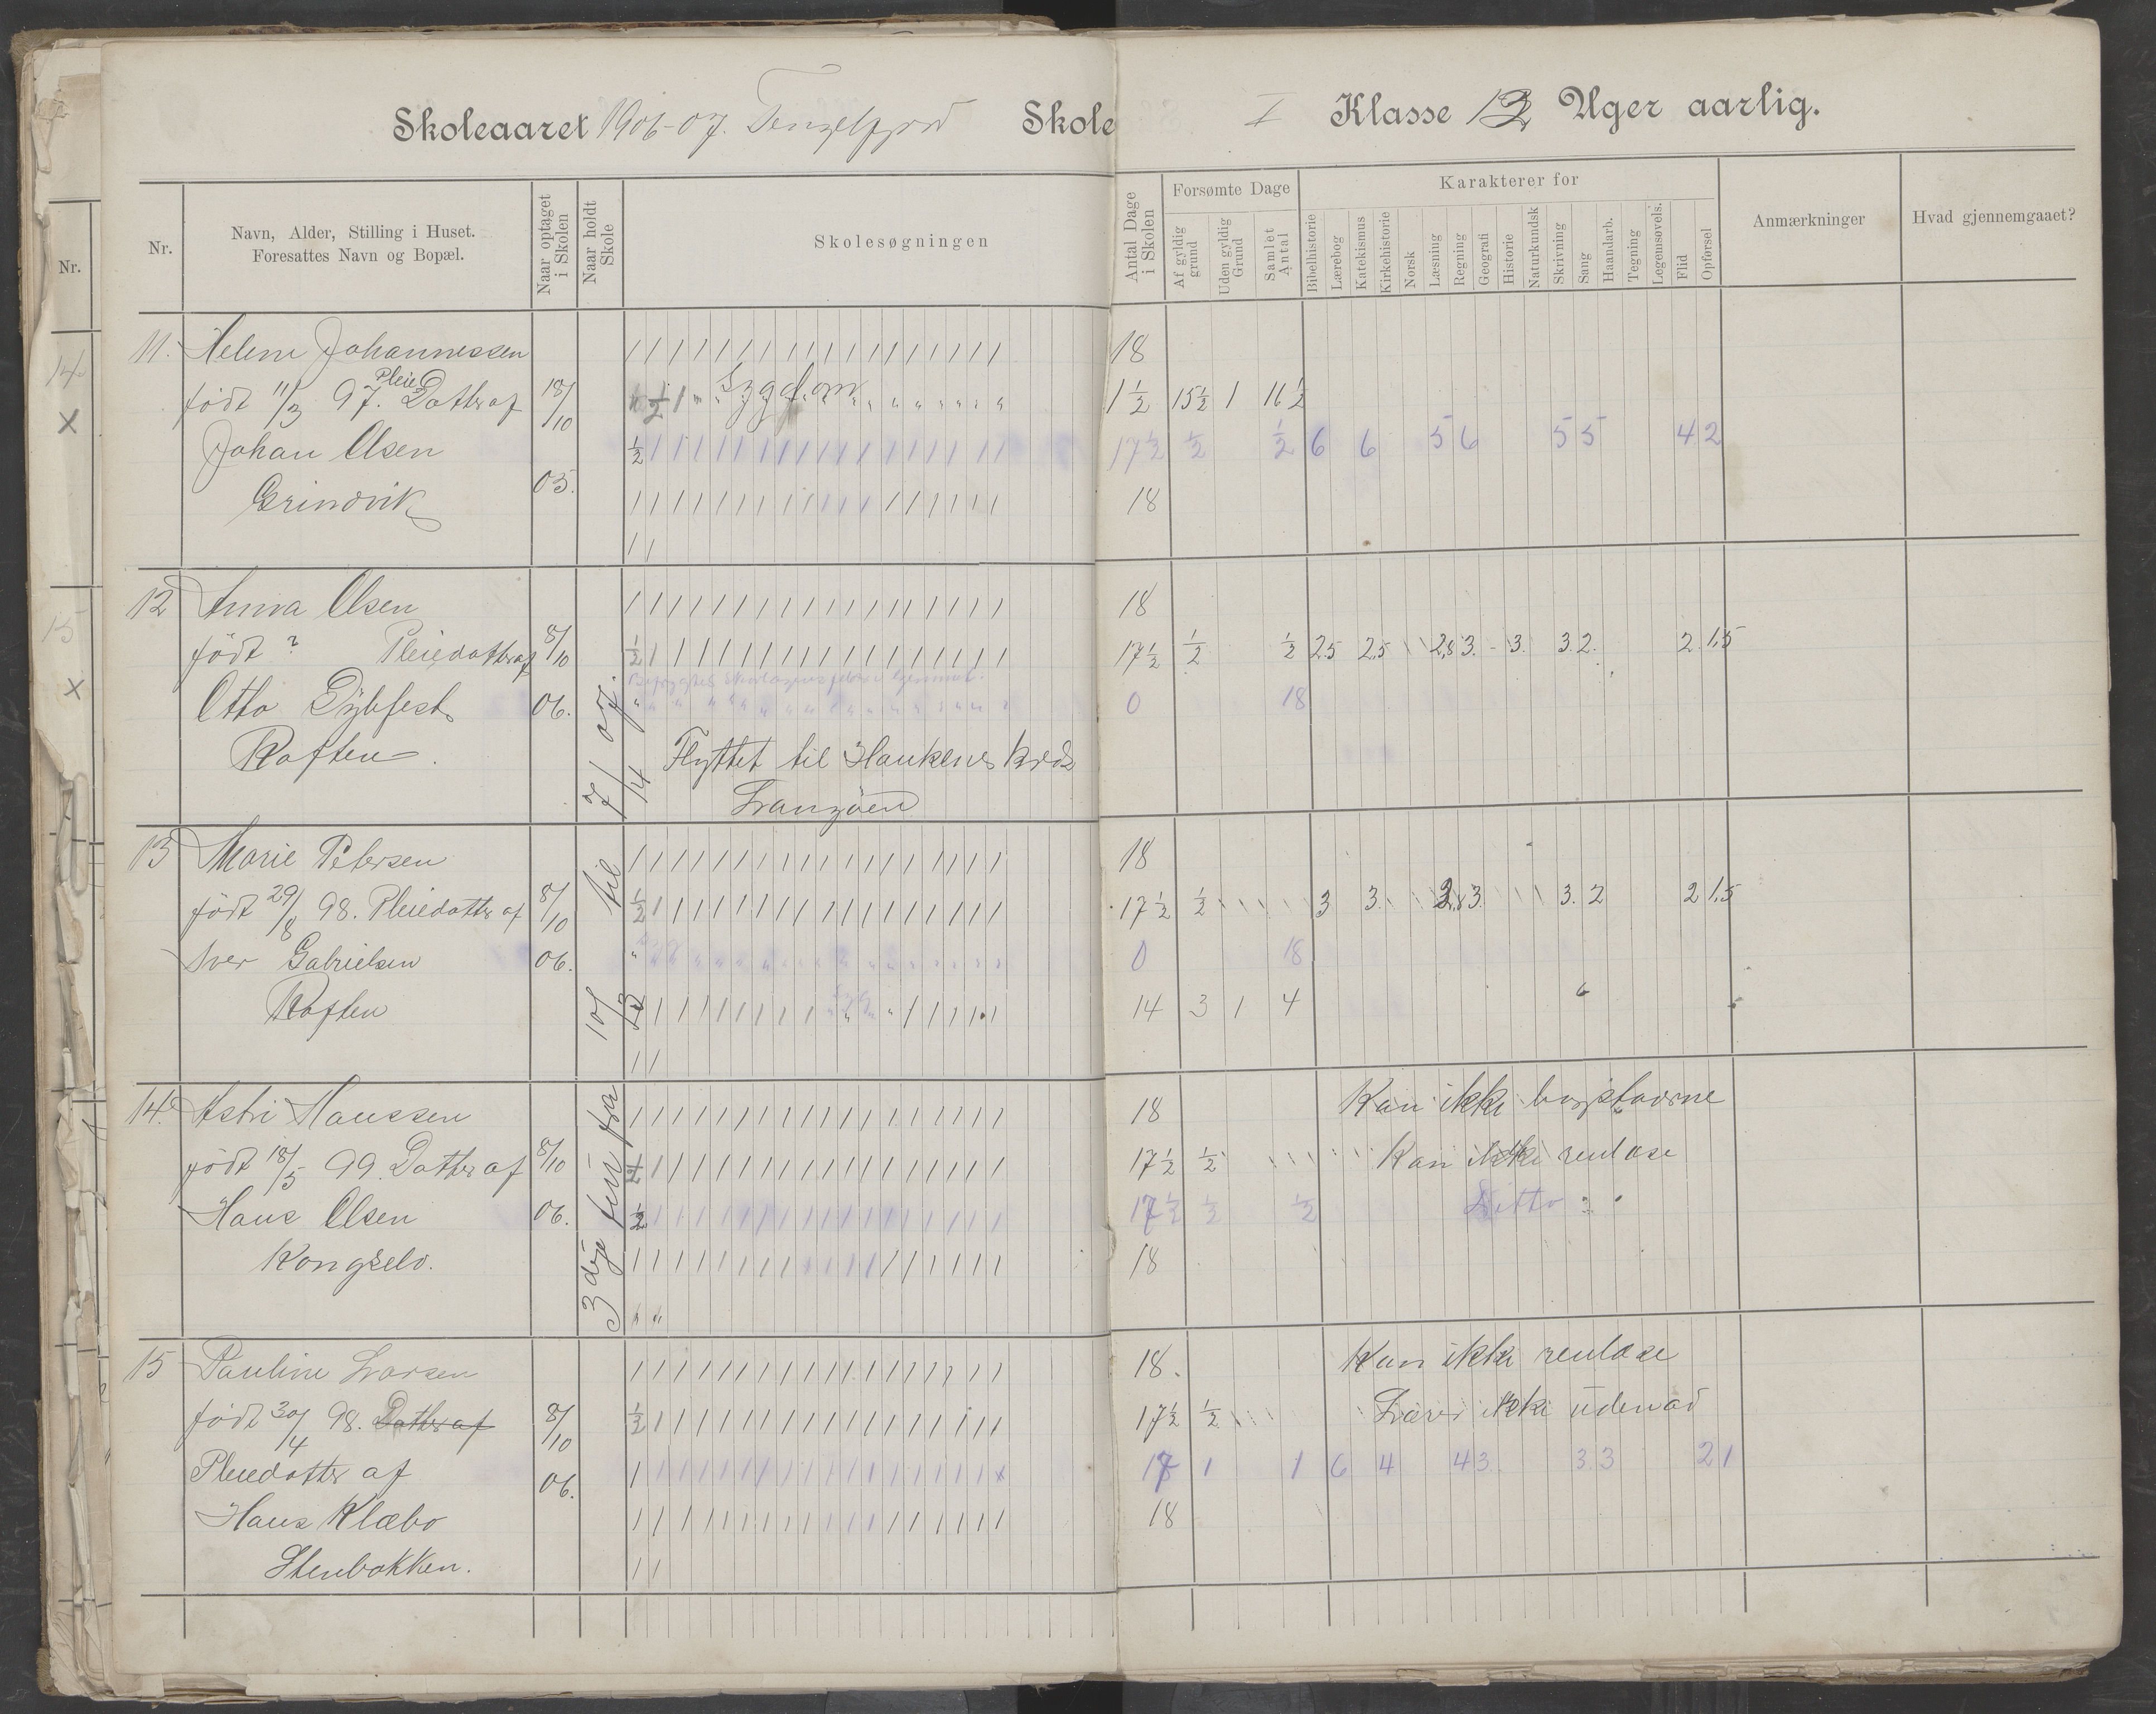 Skoleaaret 1906-07. Tengelfjord Skole I Klasse 12 Uger aarlig.
Nr.
Nr.
Navn, Alder, Stilling i Huset.
Foresattes Navn og Bopæl.
Naar optaget i Skolen
Naar holdt Skole
Skolesøgningen
Antal Dage i Skolen
Forsømte Dage
Af gyldig grund
Uden gyldig Grund
Samlet Antal
Karakterer for
Bibelhistorie
Lærebog
Katekismus
Kirkehistorie
Norsk
Læsning
Regning
Geografi
Historie
Naturkundsk
Skrivning
Sang
Haandarb.
Tegning
Legemsøvels.
Flid
Opførsel
Anmærkninger
Hvad gjennemgaaet?
14
X
15
X
3 dje termin fra 10/3 til 17/4 07.
11. Helene Johannessen 18
født 11/3 97. Pleie Datter af 18/10 1/2 1 Sygdom 1 1/2 15 1/2 1 16 1/2
Johan Olsen 1/2 17 1/2 1/2 1/2 6 6 5 6 5 5 4 2
Grindvik 05. 18
12 Anna Olsen 18
født ? Pleiedatter af 8/10 1/2 17 1/2 1/2 1/2 2.5 2,5 2,8 3. - 3. 3. 2. 2. 1.5
Otto Dybfest 06. 0 18
Raften. Flyttet til Haukenes kreds
Langöen
13 Marie Petersen 18
født 29/8 98. Pleiedatter af 8/10 1/2 17 1/2 1/2 3 3. 2,8 3. 3. 2 2 1.5
Iver Gabrielsen 06. 0 18
Raften 14 3 1 4
14. Astri Hanssen 18 Kan ikke bogstaverne
født 18/5 99. Datter af 8/10 1/2 17 1/2 1/2 Kan ikke renlæse
Hans Olsen 06. 1/2 17 1/2 1/2 1/2 Ditto
Kongselv. 18
15 Pauline Larsen 18. Kan ikke renlæse
født 30/4 98. Datter af 8/10 1/2 17 1/2 1/2 Lærer ikke udenad
Pleiedatter af 06. 17 1 1 6 4 4 3. 3. 3 2 1
Hans Klæbo 18
Stenbakken.